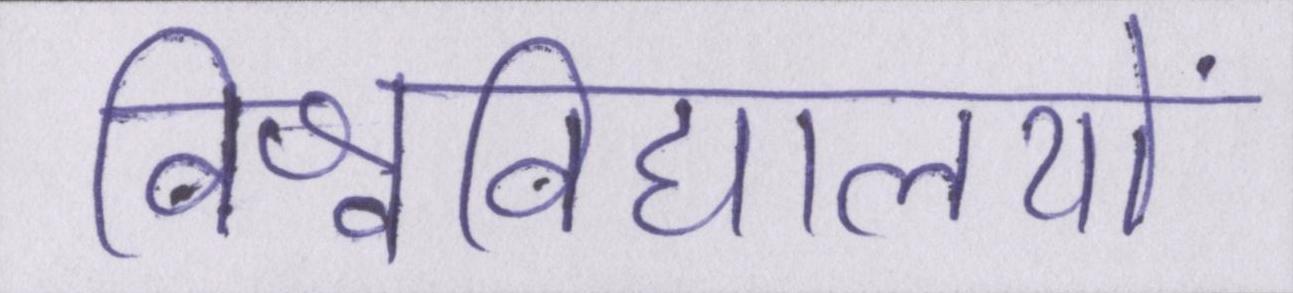 विश्वविद्यालयों